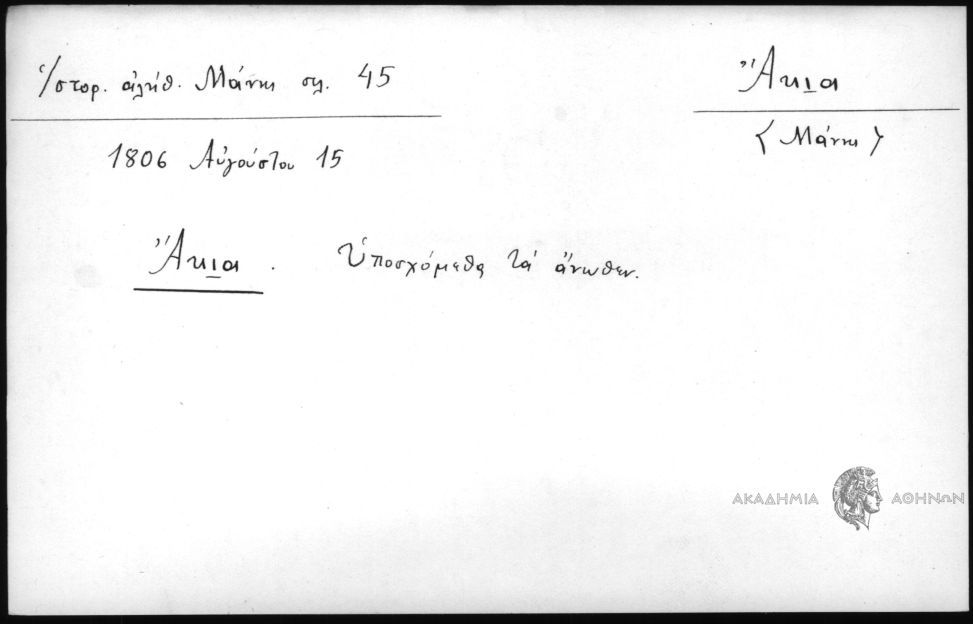 Ἱστορ. ἀλήθ. Μάνης σελ. 45
Ἄκια
< Μάνης >
1806 Αὐγούστου 15
Ἄκια . Ὑποσχόμεθα τά ἄνωθεν.
ΑΚΑΔΗΜΙΑ ΑΘΗΝΩΝ